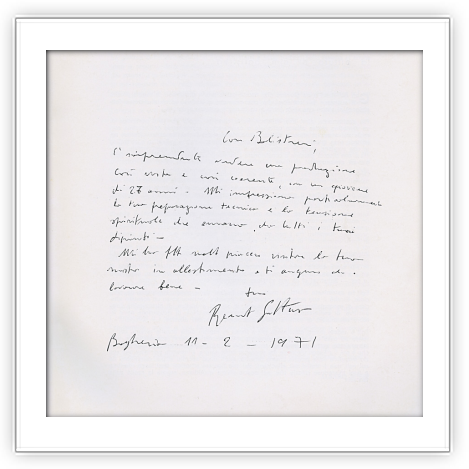 Caro Balistreri,
è sorprendente vedere una produzione
così vasta e così coerente, in un giovane
di 27 anni. Mi impressiona particolarmente
la tua preparazione tecnica e la tensione
spirituale che emana da tutti i tuoi
dipinti.
Mi ha fatto molto piacere visitare la tua
mostra in allestimento e ti auguro di
lavorare bene -
tuo
Renato Guttuso
Bagheria 11 - 2 - 1971